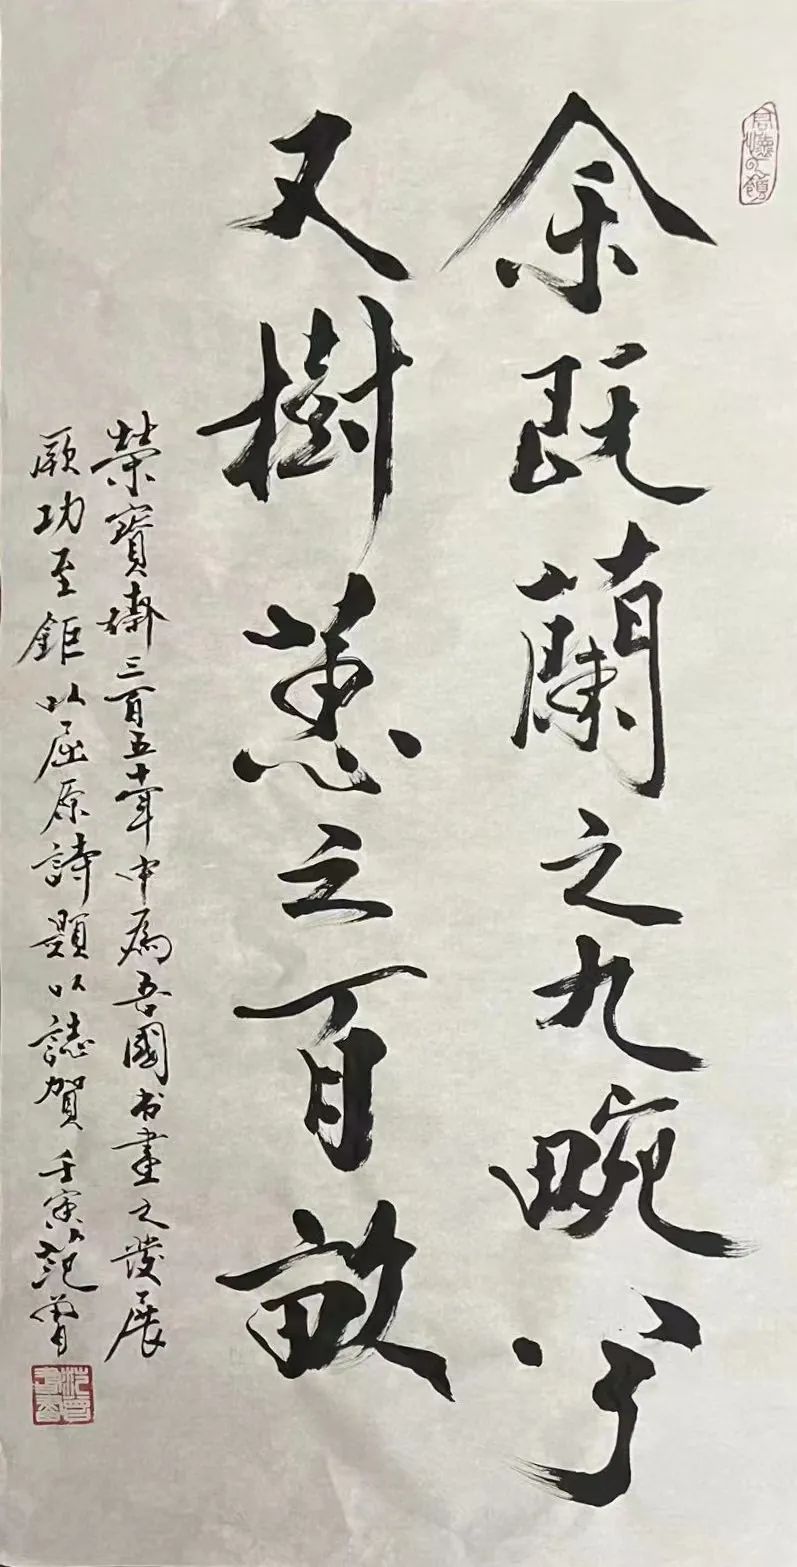 余既蘭之九畹兮
又樹蕙之百畝
榮寶齋三百五十年中為吾國书畫之發展
厥功至鉅以屈原詩題以誌賀壬寅范曾